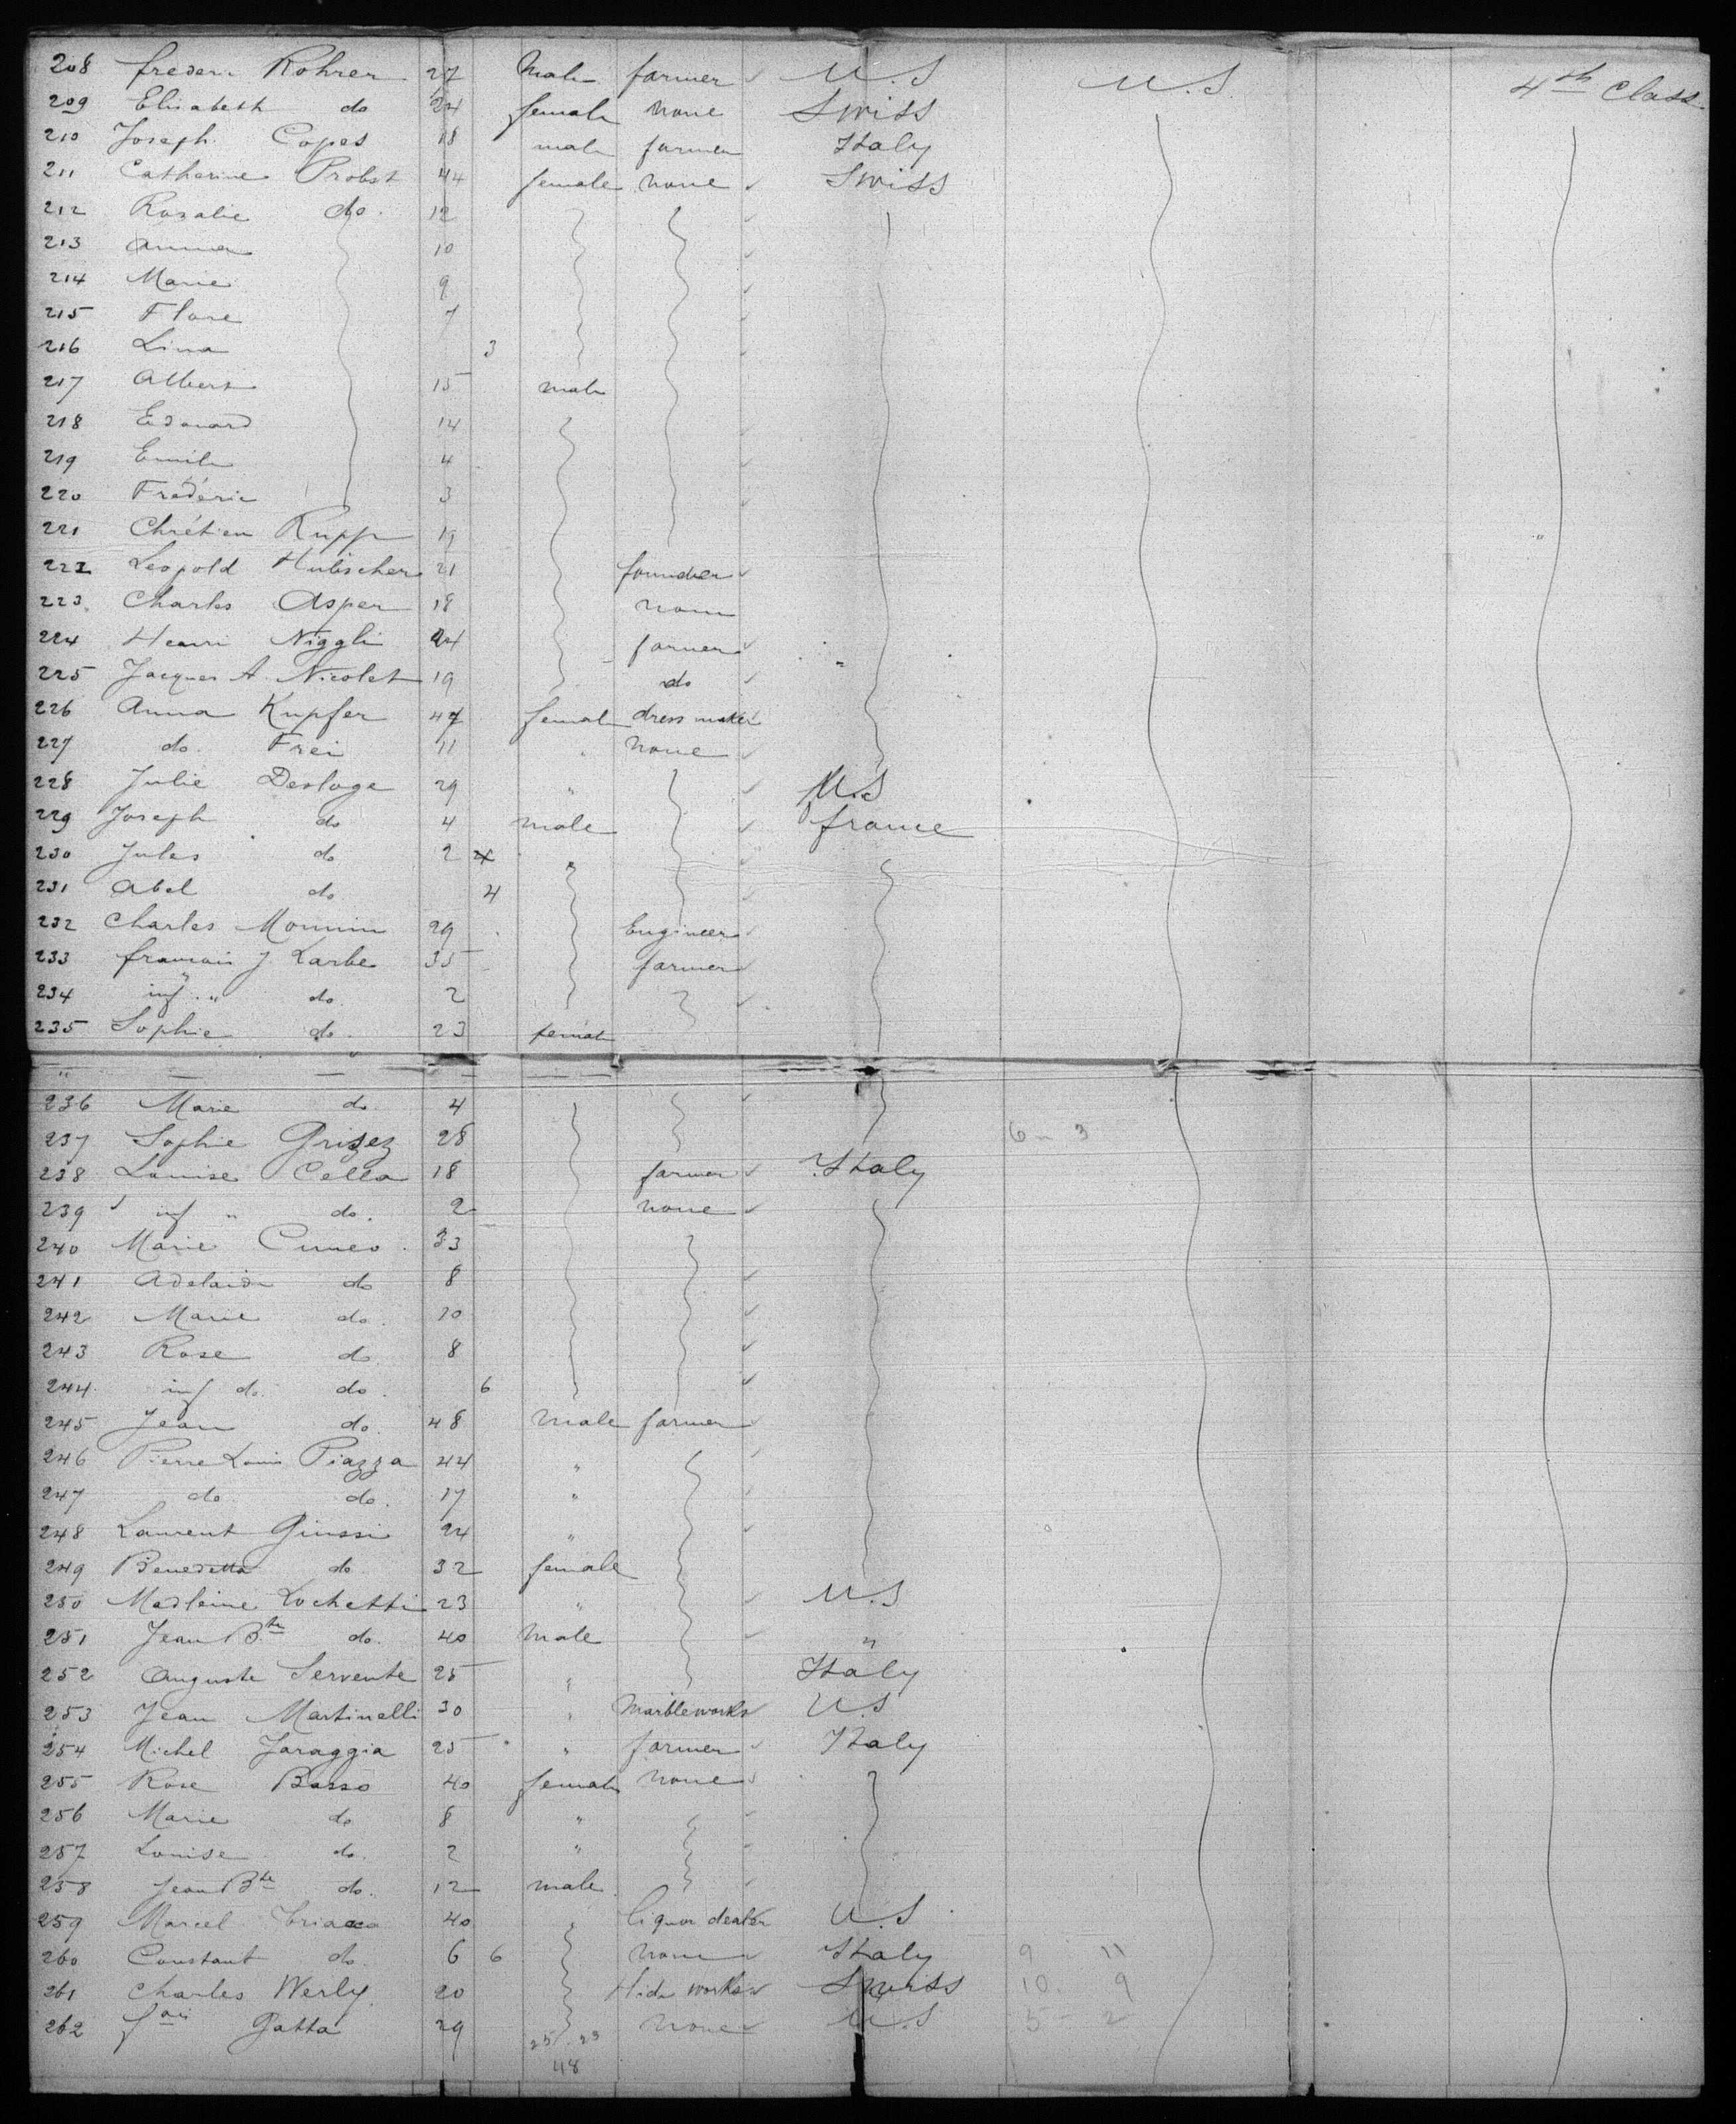 208 frederi Rohrer 27 Male farmer U.S U.S. 4th Class
209 Elisabeth do 24 female none Swiss
210 Joseph Copes 18 male farmer Italy
211 Catherine Probst 44 female none Swiss
212 Rosalie do. 12
213 Anna 10
214 Marie 9
215 Flore 7
216 Lina 3
217 Albert 15 male
218 Edouard 14
219 Emile 4
220 Frédéric 3
221 Chrétien Rupp 19
222 Leopold Hubscher 21 founder
223. Charles Asper 18 none
224 Henri Niggli 24 farmer "
225 Jacques A. Nicolet 19 do
226 Anna Kupfer 47 female dress maker
227 do. Frei 11 none
228 Julie Desloge 29 " U.S
229 Joseph do 4 male france
230 Jules do 2 "
231 Abel do 4
232 Charles Monnin 29 Engineer
233 francois J. Larbe 35 farmer
234 inf " do. 2
235 Sophie do. 23 female
" — — —
236 Marie do. 4
237 Sophie Grisez 28 6 - 3
238 Louise Cella 18 farmer Italy
239 inf " do. 2 none
240 Marie Cuneo. 33
241 Adelaide do 8
242 Marie do. 10
243 Rose do 8
244. inf do. do. 6
245 Jean do. 48 male farmer
246 Pierre Louis Piazza 44 "
247 do do. 17 "
248 Laurent Giussi 24 "
249 Benedetta do 32 female
250 Madleine Lochetti 23 " U.S
251 Jean Bte do. 40 Male "
252 Auguste Servente 25 " Italy
253 Jean Martinelli 30 " Marbleworks U.S
254 Michel Jaraggia 25 " farmer Italy
255 Rose Basso 40 female none
256 Marie do 8 "
257 Louise do. 2 "
258 Jean Bte do. 12 male
259 Marcel 40 " liquor dealer U.S.
260 Constant do. 6 6 none Italy 9 11
261 Charles Werly. 20 Hide works Swiss 10. 9
262 fois Gatta 29 none U.S 5 - 2
25 . 23
48